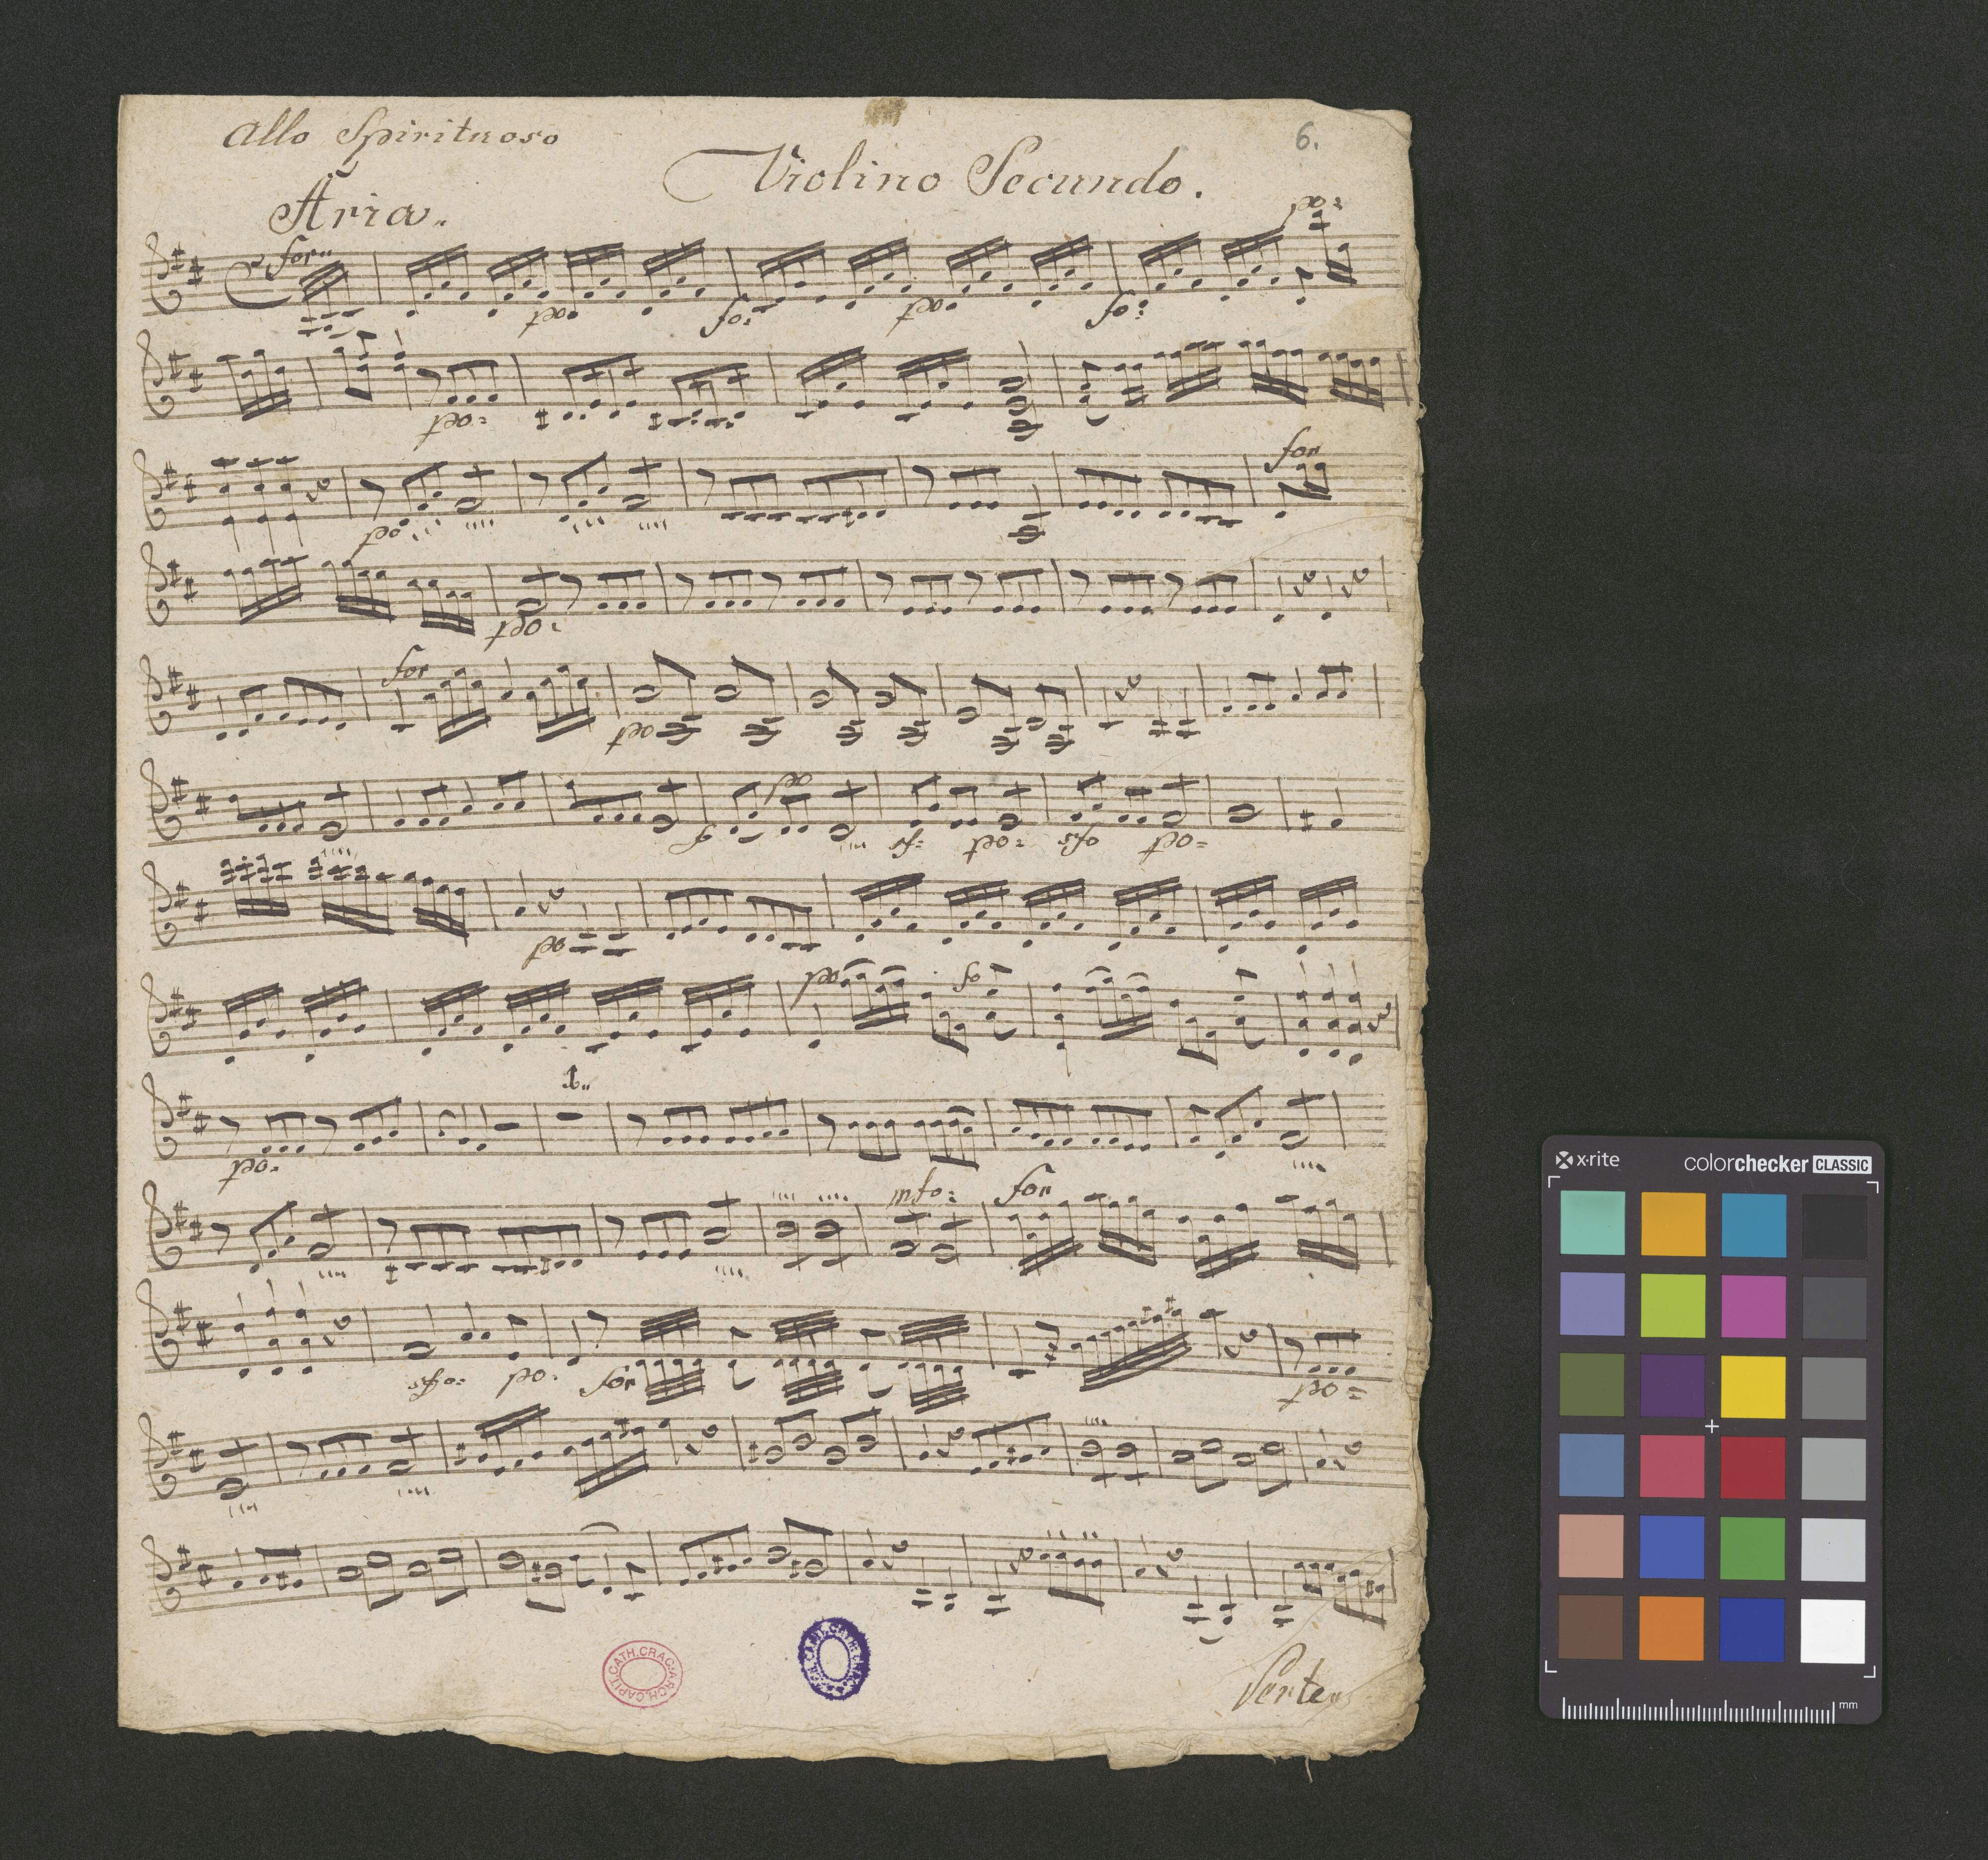 Allo Spirituoso
6.
Violino Secundo.
Aria.
po:
for..
po. fo: po. fo:
po:
for
po
po:
for
po
po
po: sfo po=
po
po fo
1..
po.
mfo: for
sfo: po. for po=
ARCH.CAPIT.CATH.CRAC.
Verte
x-rite colorchecker CLASSIC
mm